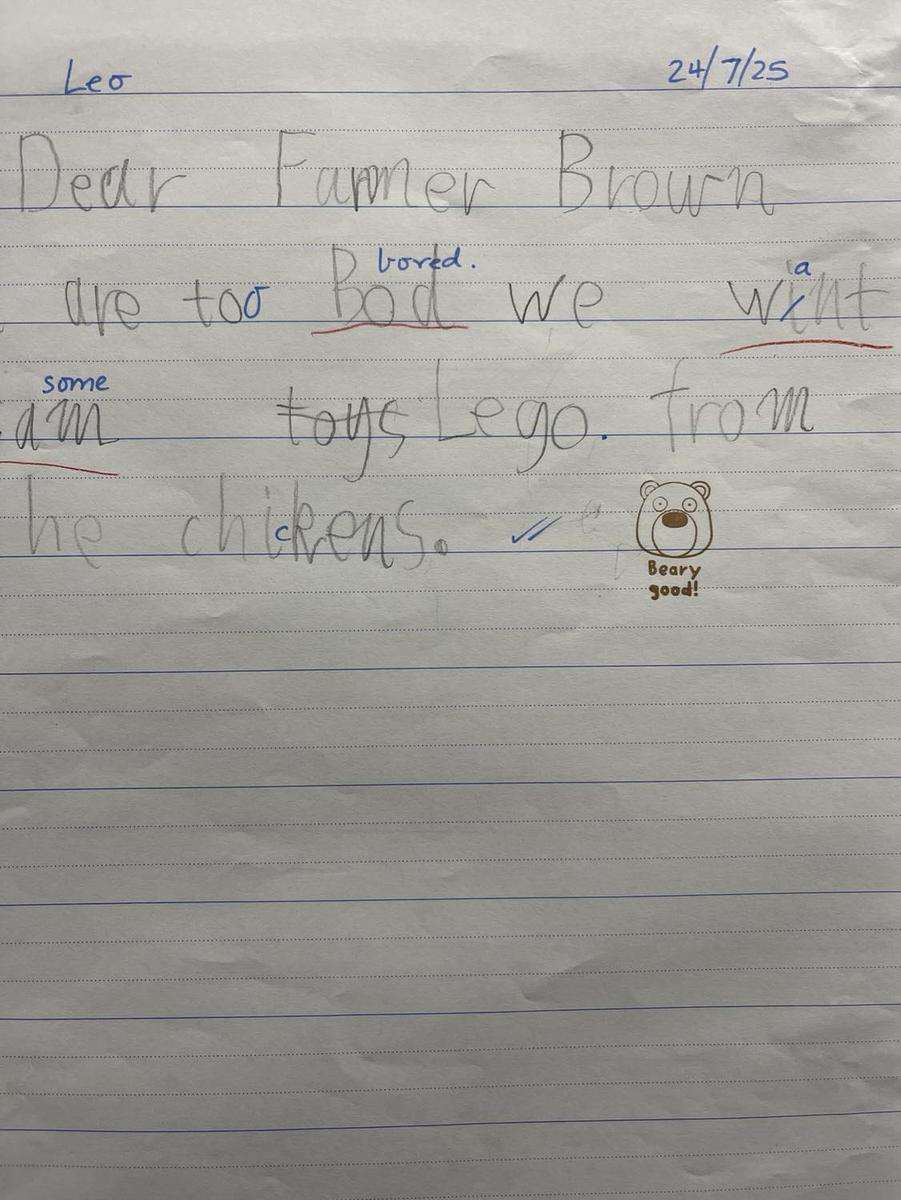 Leo 24/7/25
Dear Farmer Brown
bored. a
are too Bod we wint
some
am toys Lego. from
he chickens.
Beary
good!